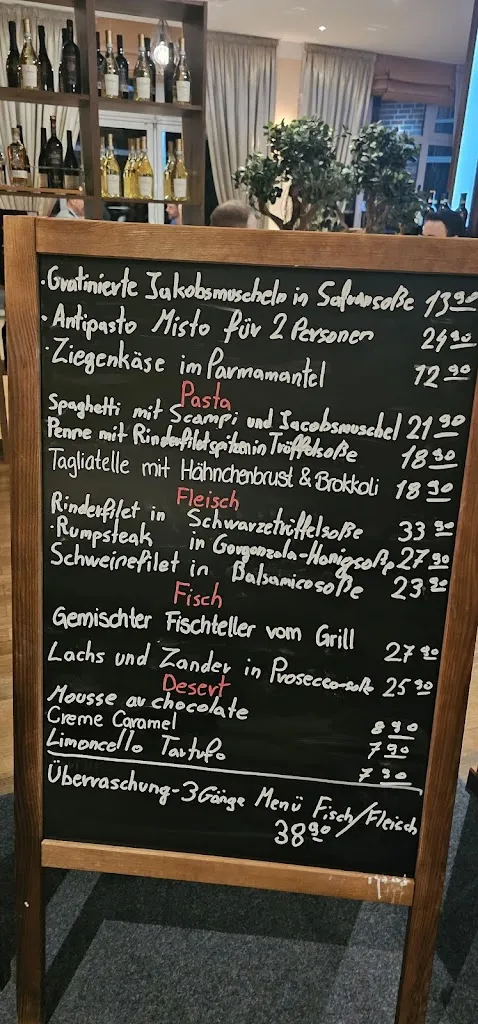 · Gratinierte Jakobsmuscheln in Safransoße 13 90
· Antipasto Misto für 2 Personen 24 90
· Ziegenkäse im Parmamantel 12 90
Pasta
Spaghetti mit Scampi und Jacobsmuschel 21 90
Penne mit Rinderfiletspitzen in Trüffelsoße 18 90
Tagliatelle mit Hähnchenbrust & Brokkoli 18 90
Fleisch
Rinderfilet in Schwarzetrüffelsoße 33 90
· Rumpsteak in Gorgonzola-Honigsoße 27 90
Schweinefilet in Balsamicosoße 23 90
Fisch
Gemischter Fischteller vom Grill 27 90
Lachs und Zander in Prosecco-soße 25 90
Desert
Mousse au chocolate 8 90
Creme Caramel 7 90
Limoncello Tartufo 7 90
Überraschung-3 Gänge Menü Fisch/Fleisch
38 90